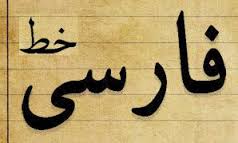 خط
فارسی